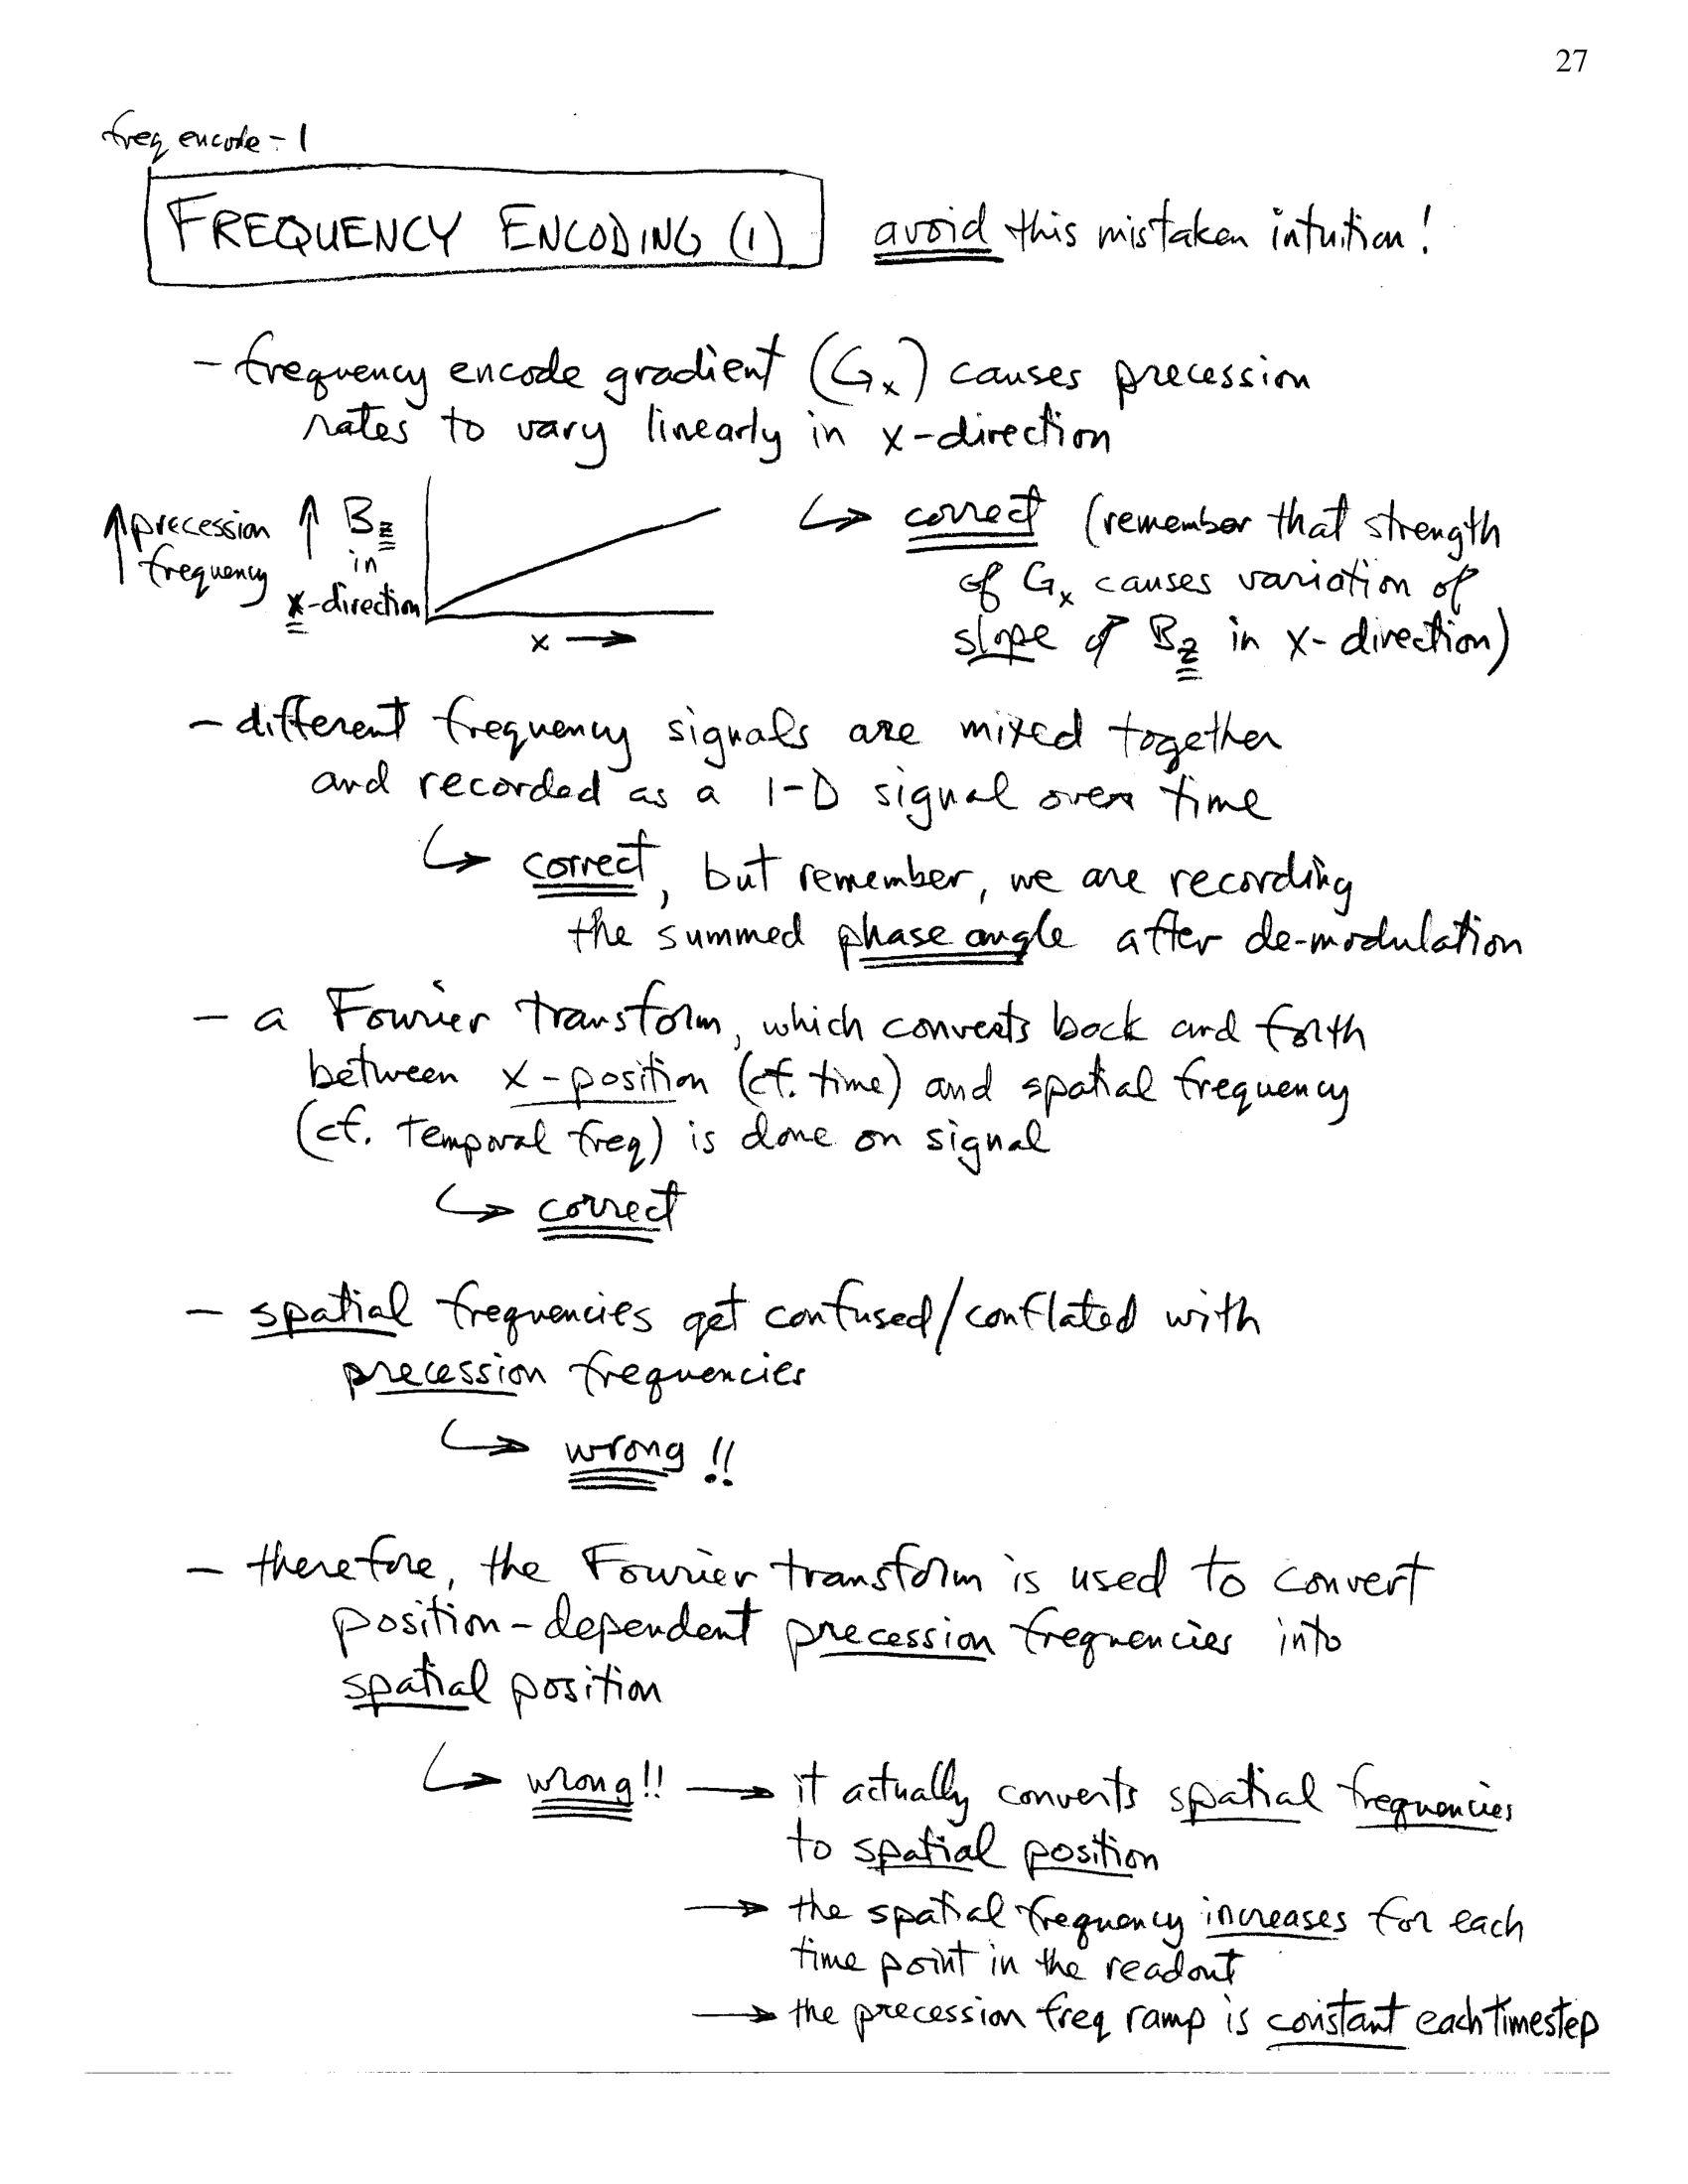 27
freq encode - 1
FREQUENCY ENCODING (1) avoid this mistaken intuition!
- frequency encode gradient (Gx) causes precession
rates to vary linearly in x-direction
↑ precession frequency ↑ Bz in x-direction
x →
↳ correct (remember that strength
of Gx causes variation of
slope of Bz in x-direction)
- different frequency signals are mixed together
and recorded as a 1-D signal over time
↳ correct, but remember, we are recording
the summed phase angle after de-modulation
- a Fourier transform, which converts back and forth
between x-position (cf. time) and spatial frequency
(cf. temporal freq) is done on signal
↳ correct
- spatial frequencies get confused/conflated with
precession frequencies
↳ wrong!!
- therefore, the Fourier transform is used to convert
position-dependent precession frequencies into
spatial position
↳ wrong!! → it actually converts spatial frequencies
to spatial position
→ the spatial frequency increases for each
time point in the readout
→ the precession freq ramp is constant each timestep